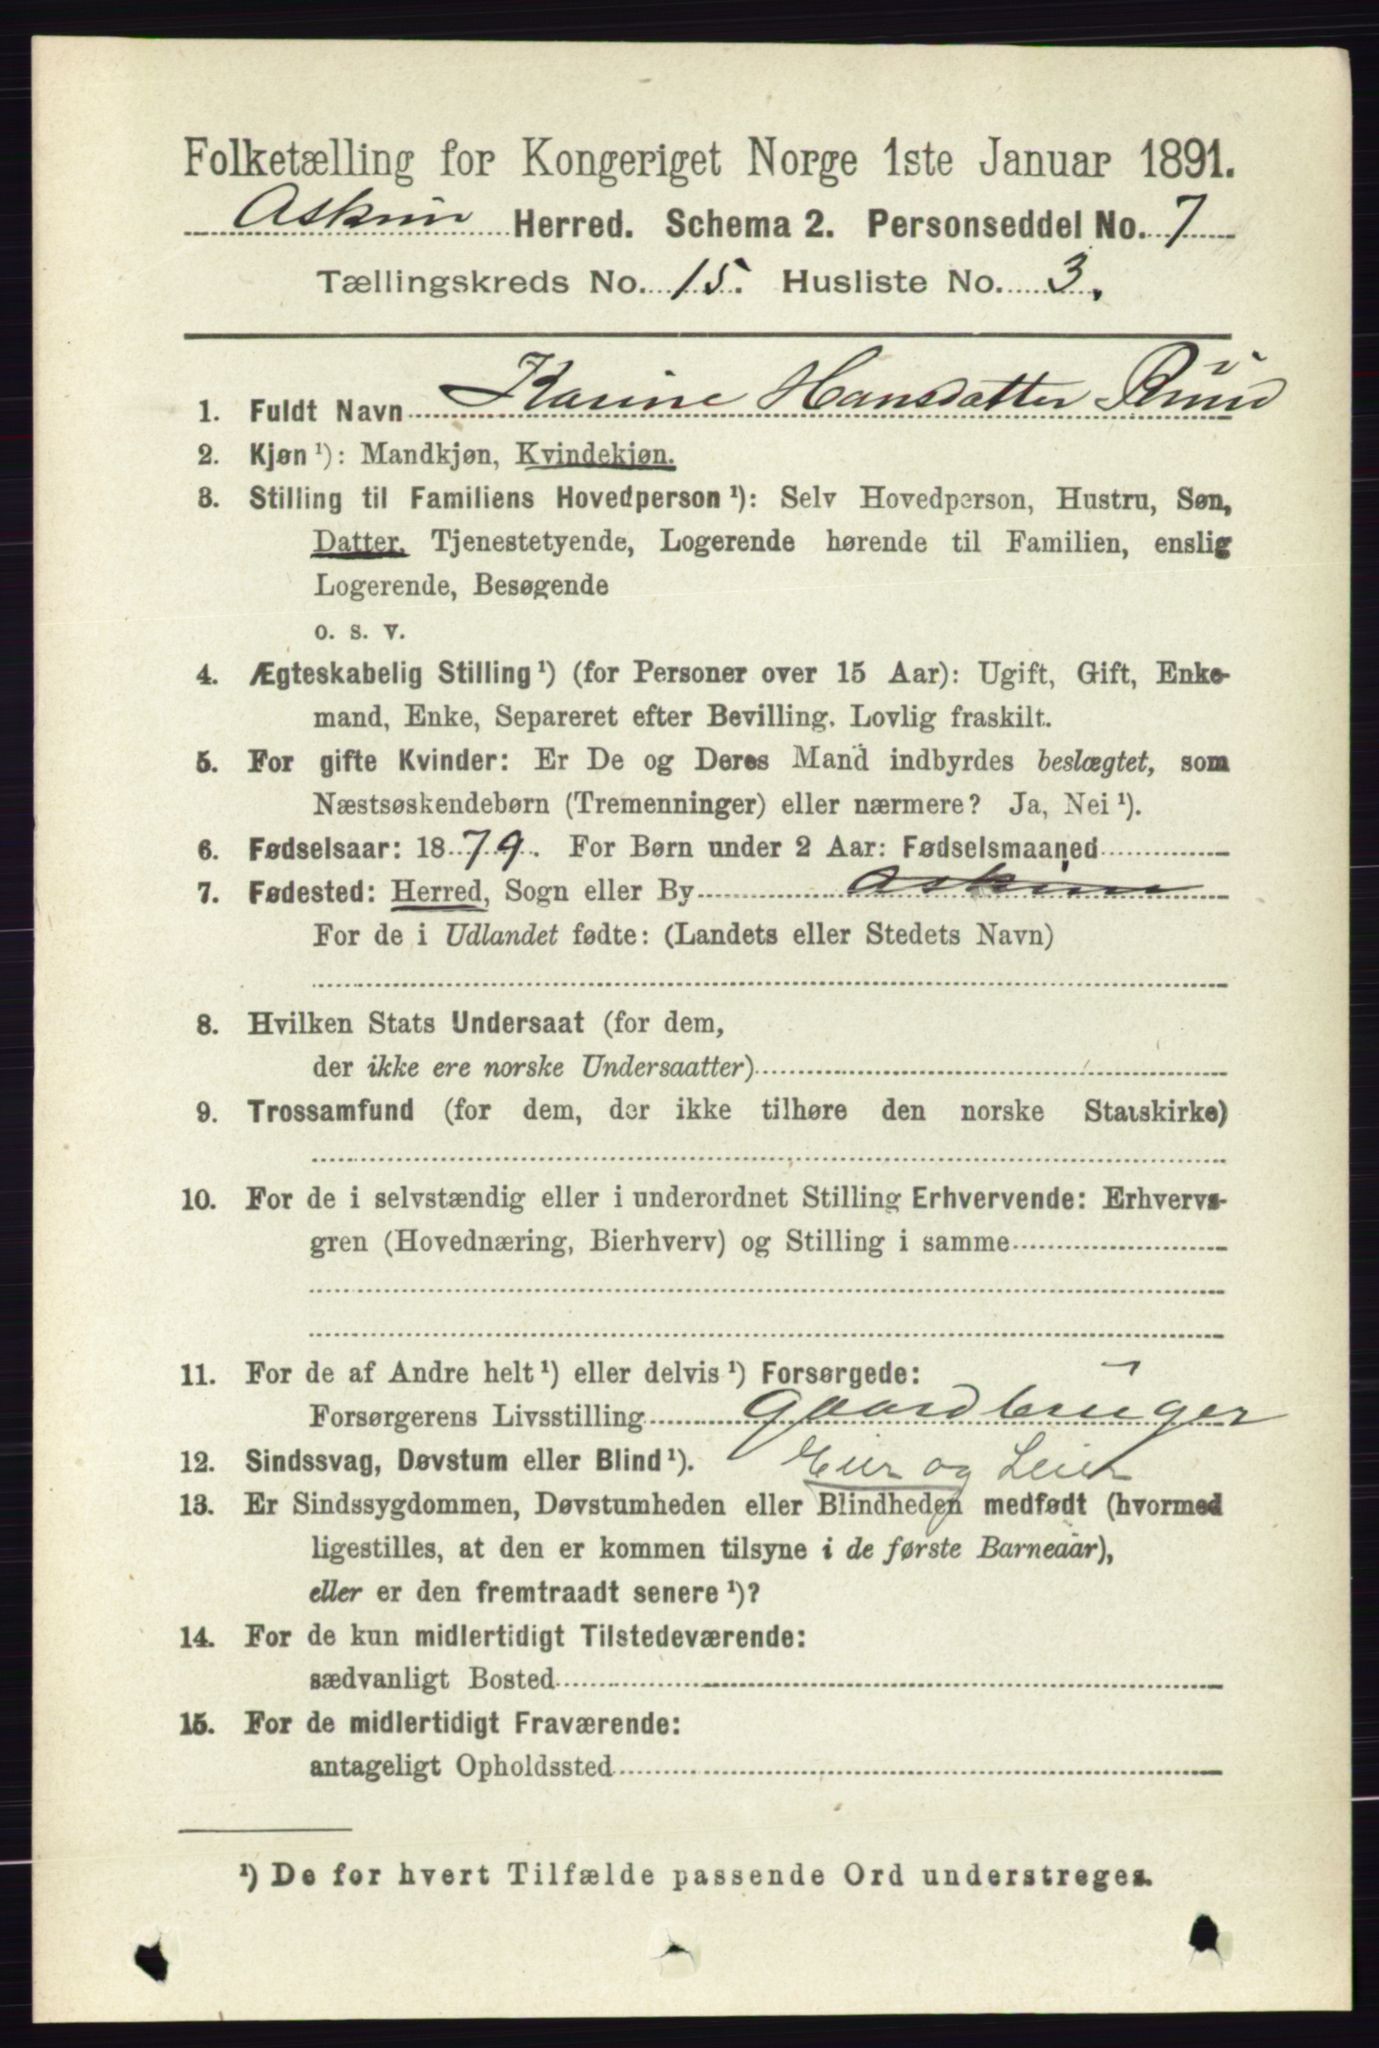 Folketælling for Kongeriget Norge 1ste Januar 1891.
Askim Herred. Schema 2. Personseddel No. 7
Tællingskreds No. 15. Husliste No. 3.
1. Fuldt Navn Karine Hansdatter Ruud
2. Kjøn ¹): Mandkjøn, Kvindekjøn.
3. Stilling til Familiens Hovedperson ¹): Selv Hovedperson, Hustru, Søn,
Datter, Tjenestetyende, Logerende hørende til Familien, enslig
Logerende, Besøgende
o. s. v.
4. Ægteskabelig Stilling ¹) (for Personer over 15 Aar): Ugift, Gift, Enke-
mand, Enke, Separeret efter Bevilling. Lovlig fraskilt.
5. For gifte Kvinder: Er De og Deres Mand indbyrdes beslægtet, som
Næstsøskendebørn (Tremenninger) eller nærmere? Ja, Nei ¹).
6. Fødselsaar: 1879. For Børn under 2 Aar: Fødselsmaaned
7. Fødested: Herred, Sogn eller By Askim
For de i Udlandet fødte: (Landets eller Stedets Navn)
8. Hvilken Stats Undersaat (for dem,
der ikke ere norske Undersaatter)
9. Trossamfund (for dem, der ikke tilhøre den norske Statskirke)
10. For de i selvstændig eller i underordnet Stilling Erhvervende: Erhvervs-
gren (Hovednæring, Bierhverv) og Stilling i samme
11. For de af Andre helt ¹) eller delvis ¹) Forsørgede:
Forsørgerens Livsstilling Gaardbruger
12. Sindssvag, Døvstum eller Blind ¹). Eier og Leier
13. Er Sindssygdommen, Døvstumheden eller Blindheden medfødt (hvormed
ligestilles, at den er kommen tilsyne i de første Barneaar),
eller er den fremtraadt senere ¹)?
14. For de kun midlertidigt Tilstedeværende:
sædvanligt Bosted
15. For de midlertidigt Fraværende:
antageligt Opholdssted
¹) De for hvert Tilfælde passende Ord understreges.